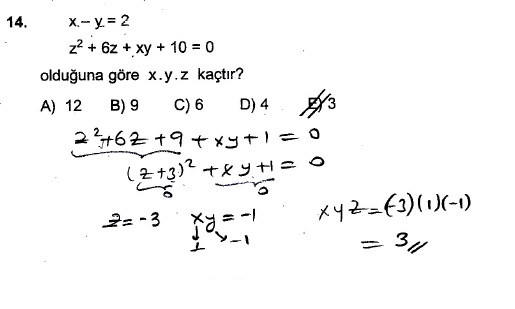 14. x - y = 2
z² + 6z + xy + 10 = 0
olduğuna göre x.y.z kaçtır?
A) 12 B) 9 C) 6 D) 4 E) 3
z² + 6z + 9 + xy + 1 = 0
(z+3)² + xy + 1 = 0
0 0
z = -3 xy = -1
1 -1
xyz = (-3)(1)(-1)
= 3